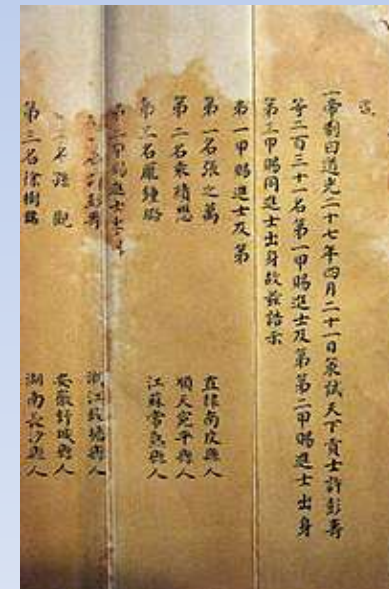 帝制曰道光二十七年四月二十一日策試天下貢士許彭壽
等二百三十一名第一甲賜進士及第第二甲賜進士出身
第三甲賜同進士出身故茲誥示
第一甲賜進士及第
第一名張之萬 直隸南皮縣人
第二名袁績懋 順天宛平縣人
第三名龐鍾璐 江蘇常熟縣人
第二甲賜進士出身
名許彭壽 浙江錢塘縣人
二名孫觀 安徽舒城縣人
第三名徐樹銘 湖南長沙縣人